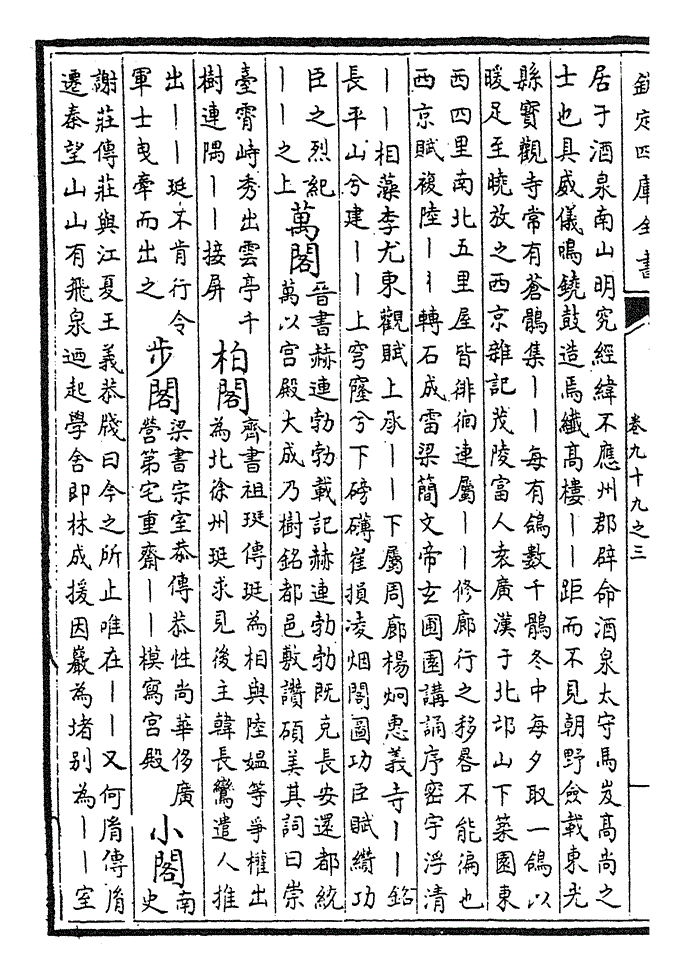 欽定四庫全書
卷九十九之三
居于酒泉南山明究經緯不應州郡辟命酒泉太守馬岌高尚之
士也具威儀鳴鐃鼓造焉纎高樓丨丨距而不見朝野僉載東光
縣寳觀寺常有蒼鶻集丨丨每有鴿數千鶻冬中每夕取一鴿以
暖足至曉放之西京雜記茂陵富人袁廣漢于北邙山下築園東
西四里南北五里屋皆徘徊連屬丨丨修廊行之移晷不能徧也
西京賦複陸丨丨轉石成雷梁簡文帝玄圃園講誦序密宇浮清
丨丨相藻李尤東觀賦上承丨丨下屬周廊楊炯惠義寺丨丨銘
長平山兮建丨丨上穹窿兮下磅礴崔損凌烟閣圖功臣賦纘功
臣之烈紀
丨丨之上
萬閣
晉書赫連勃勃載記赫連勃勃既克長安還都統
萬以宫殿大成乃樹銘都邑敷讚碩美其詞曰崇
臺霄峙秀出雲亭千
樹連隅丨丨接屏
柏閣
齊書祖珽傳珽為相與陸媼等爭權出
為北徐州珽求見後主韓長鸞遣人推
出丨丨珽不肯行令
軍士曳牽而出之
步閣
梁書宗室恭傳恭性尚華侈廣
營第宅重齋丨丨模寫宫殿
小閣
南
史
謝莊傳莊與江夏王義恭牋曰今之所止唯在丨丨又何胤傳胤
遷秦望山山有飛泉迺起學舍即林成援因巖為堵别為丨丨室